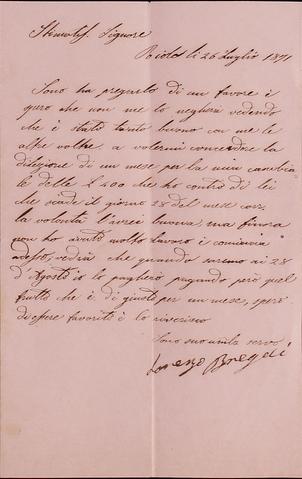 Stimatis. Signore
li 26 Luglio 1871
Sono ha pregarlo di un favore è
spero che non me lo negherà vedendo
che è stato tanto buono con me le
altre voltre, a volermi concedere la
dilazione di un mese per la mia cambia
le delle L 400 che ho contro di lei
che scade il giorno 28 del mese
la volontà l'avrei buona, ma finora
non ho avuto molto lavoro è comincia
adesso, vedrà che quando saremo ai 28
d'Agosto io la pagherò pagando però quel
frutto che è di giusto per un mese, spero
di essere favorito è la riverisco
Sono suo umile servo
Lorenzo